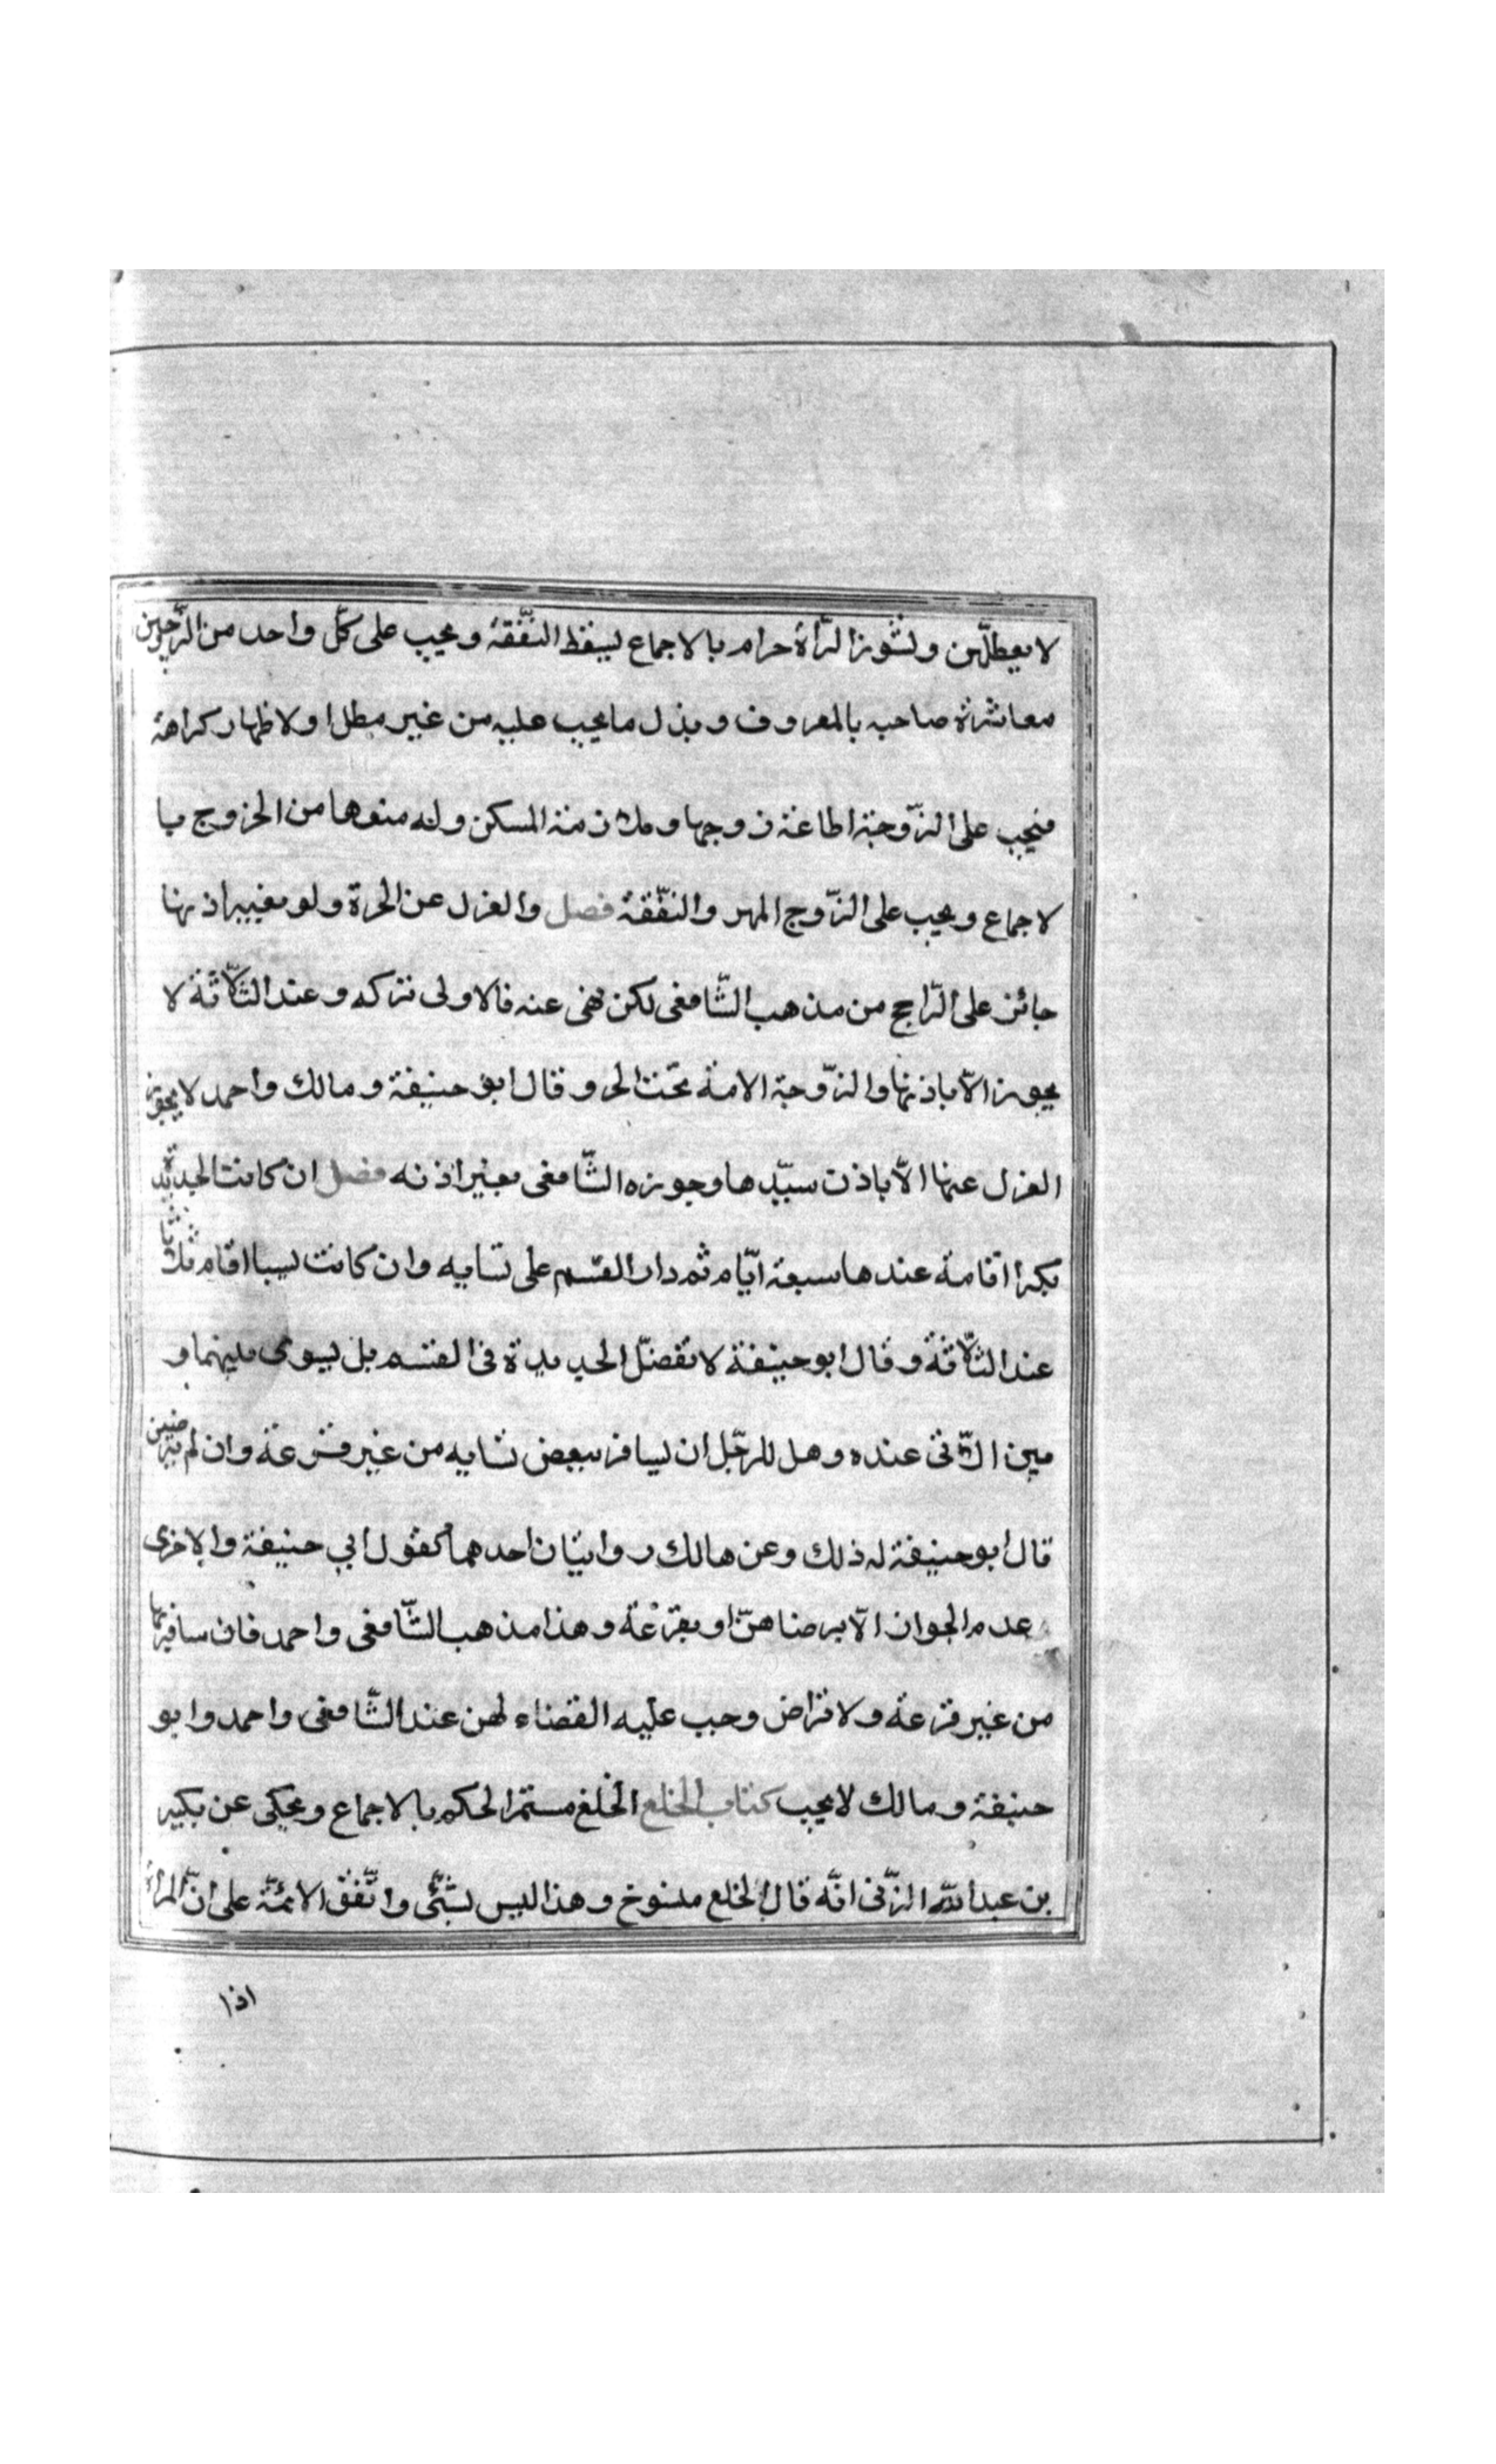 لا يعطلّهن ونشوز المرأة حرام بالاجماع يسقط النّفقة ويجب على كلّ واحد من الزّوجين
معاشرة صاحبه بالمعروف وبذل ما يجب عليه من غير مطل اولا ظهار كراهة
فيجب على الزّوجة اطاعة زوجها وملازمة المسكن وله منعها من الخروج با
لاجماع ويجب على الزّوج المهر والنّفقة فصل والعزل عن الحرة ولو بغير اذنها
جائز على الرّاجح من مذهب الشّافعى لكن نهى عنه فالاولى تركه وعند الثّلاثة لا
يجوز الاّ باذنها والزّوجة الامة تحت الحر وقال ابو حنيفة ومالك واحمد لا يجوز
العزل عنها الاّ باذن سيّدها وجوزه الشّافعى بغير اذنه فصل ان كانت الجديدة
بكرا اقامة عندها سبعة ايّام ثم دار القسم على نسايه وان كانت ثيبا اقام ثلاثا
عند الثّلاثة وقال ابو حنيفة لا تفضّل الجديدة فى القسم بل يسوى بينهما و
بين الّاتى عنده وهل للرجّل ان يسافر ببعض نسايه من غير قرعة وان لم يرضين
قال ابو حنيفة له ذلك وعن مالك روايتان احدهما كقول ابي حنيفة والاخرى
عدم الجواز الاّ برضاهنّ او بقرعة وهذا مذهب الشّافعى واحمد فان سافر بها
من غير قرعة ولا تراض وجب عليه القضاء لهن عند الشّافعى واحمد وابو
حنيفة ومالك لا يجب كتاب الخلع الخلع مستمر الحكم بالاجماع ويحكى عن بكير
بن عبد الله المزنى انّه قال الخلع منسوخ وهذا ليس بشئى واتّفق الائمّة على انّ المرأة
اذا